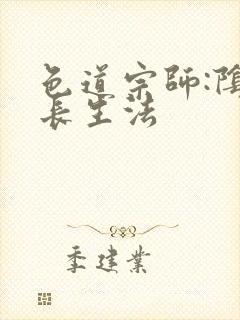 色道宗師:陰
長生法
季建業